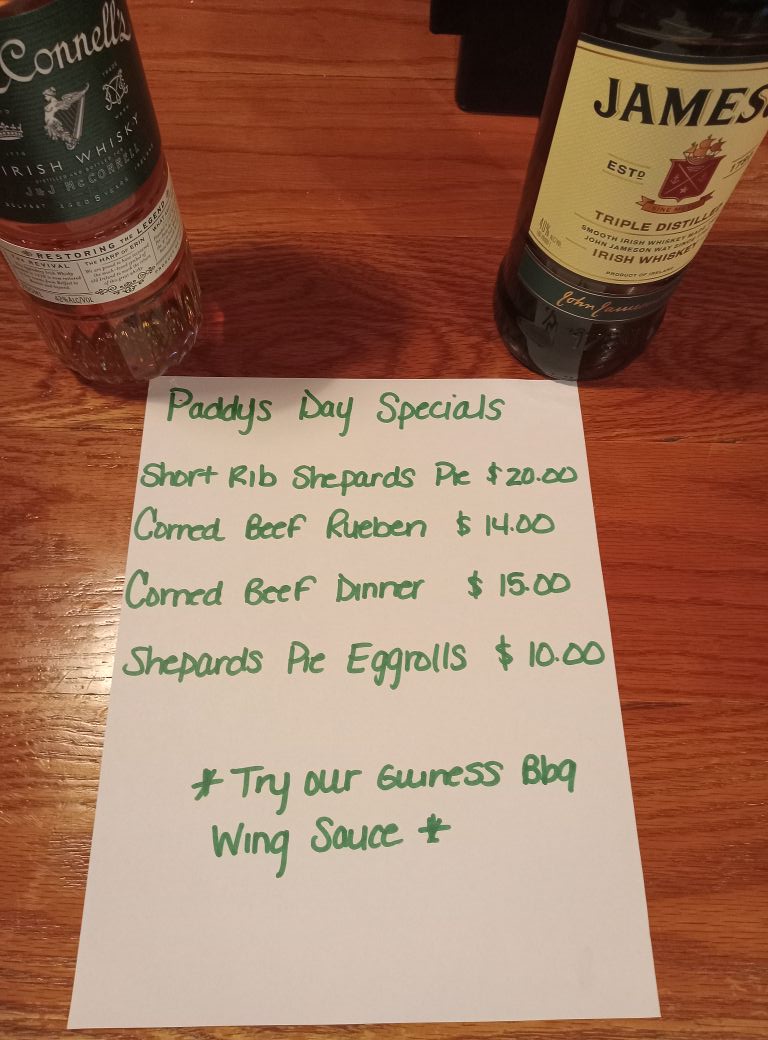 Connell's
IRISH WHISKY
J&J McCONNELL
BELFAST AGED 5 YEARS
RESTORING THE LEGEND
REVIVAL
THE HARP OF ERIN
42%ALC/VOL
JAMES
ESTD
SINE
TRIPLE DISTILLED
SMOOTH IRISH WHISKEY
JOHN JAMESON WAY
IRISH WHISKEY
PRODUCT OF IRELAND
John Jameson
Paddys Day Specials
Short Rib Shepards Pie $20.00
Corned Beef Rueben $ 14.00
Corned Beef Dinner $ 15.00
Shepards Pie Eggrolls $ 10.00
* Try our Guiness Bbq
Wing Sauce *